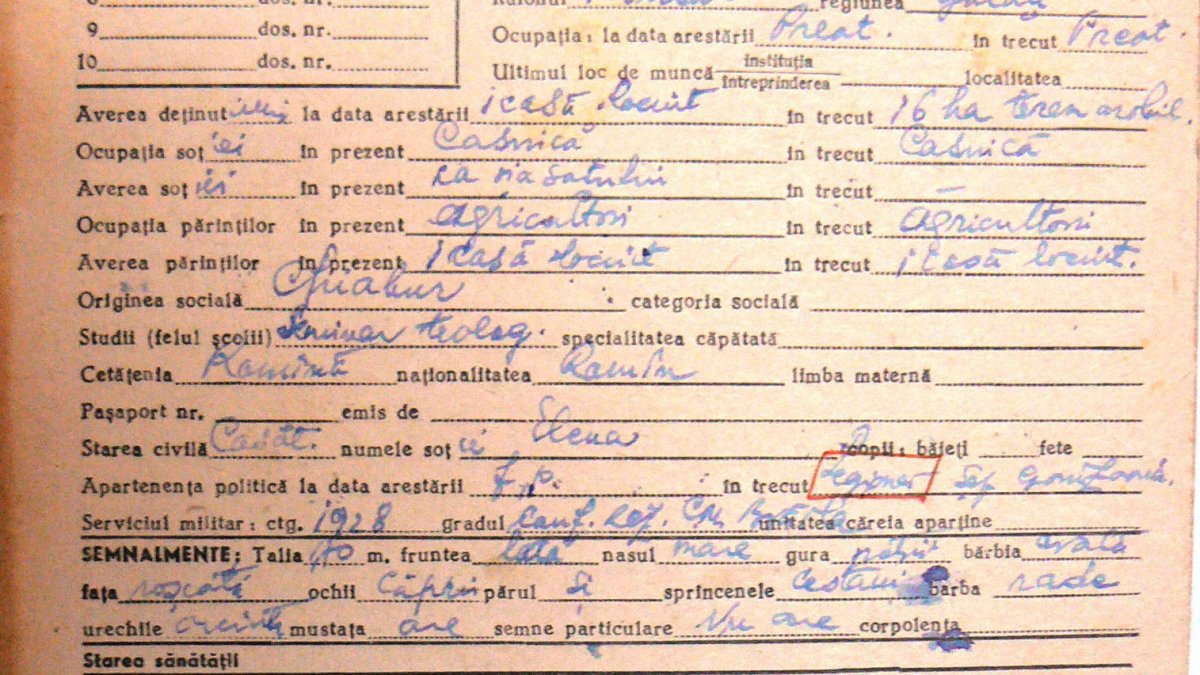 dos. nr.
regiunea
9 dos. nr.
Ocupația: la data arestării Preot. în trecut Preot.
10 dos. nr.
Ultimul loc de muncă instituția întreprinderea localitatea
Averea dețin la data arestării 1 casă locuit în trecut 16 ha teren arabil.
Ocupația soț iei în prezent Casnică în trecut Casnică
Averea soț iei în prezent în trecut —
Ocupația părinților în prezent agricultori în trecut agricultori
Averea părinților în prezent 1 casă locuit în trecut 1 casă locuit.
Originea socială Chiabur categoria socială
Studii (felul școlii) Seminar teolog. specialitatea căpătată
Cetățenia Romînă naționalitatea Romîn limba maternă
Pașaport nr. emis de
Starea civilă Casăt. numele soț iei Elena copii: băieți fete
Apartenența politică la data arestării în trecut Legionar șef
Serviciul militar: ctg. 1928 gradul unitatea căreia aparține
SEMNALMENTE: Talia m. fruntea lată nasul mare gura bărbia ovală
fața roșcată ochii căprui părul și sprîncenele castanii barba rade
urechile mustața are semne particulare Nu are corpolența
Starea sănătății